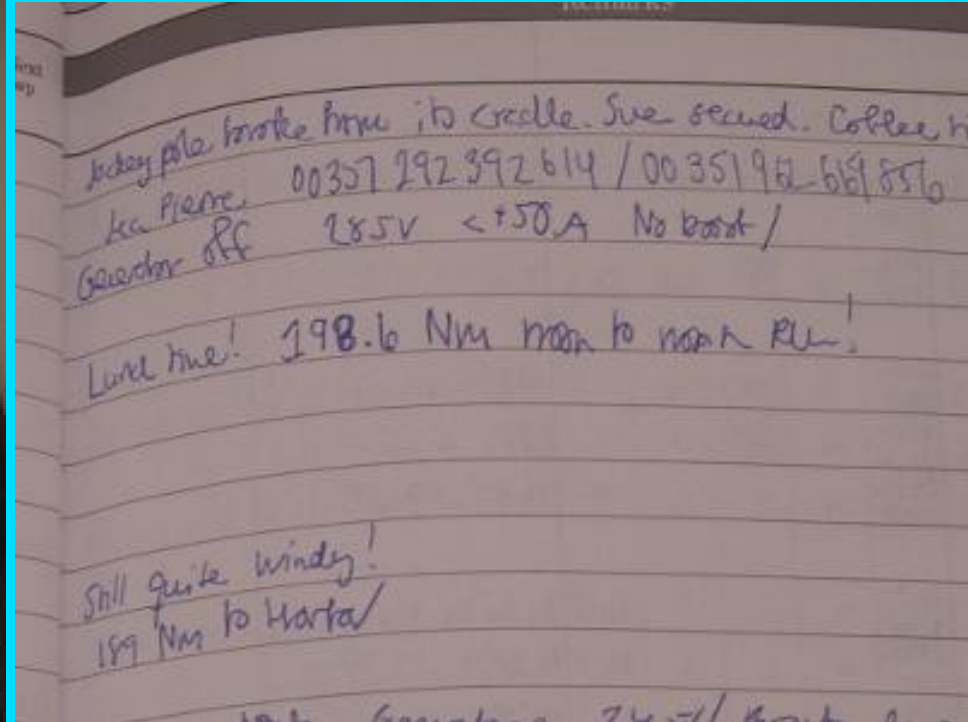 Remarks
Next
Jockey pole broke from its cradle. Sue secured. Coffee
Pierre 00351 292 392 614 / 00 351 962 669 856
Generator off 285V <+50A No boost /
Lunch time! 198.6 Nm noon to noon run!
Still quite windy!
189 Nm to Horta/
Generator